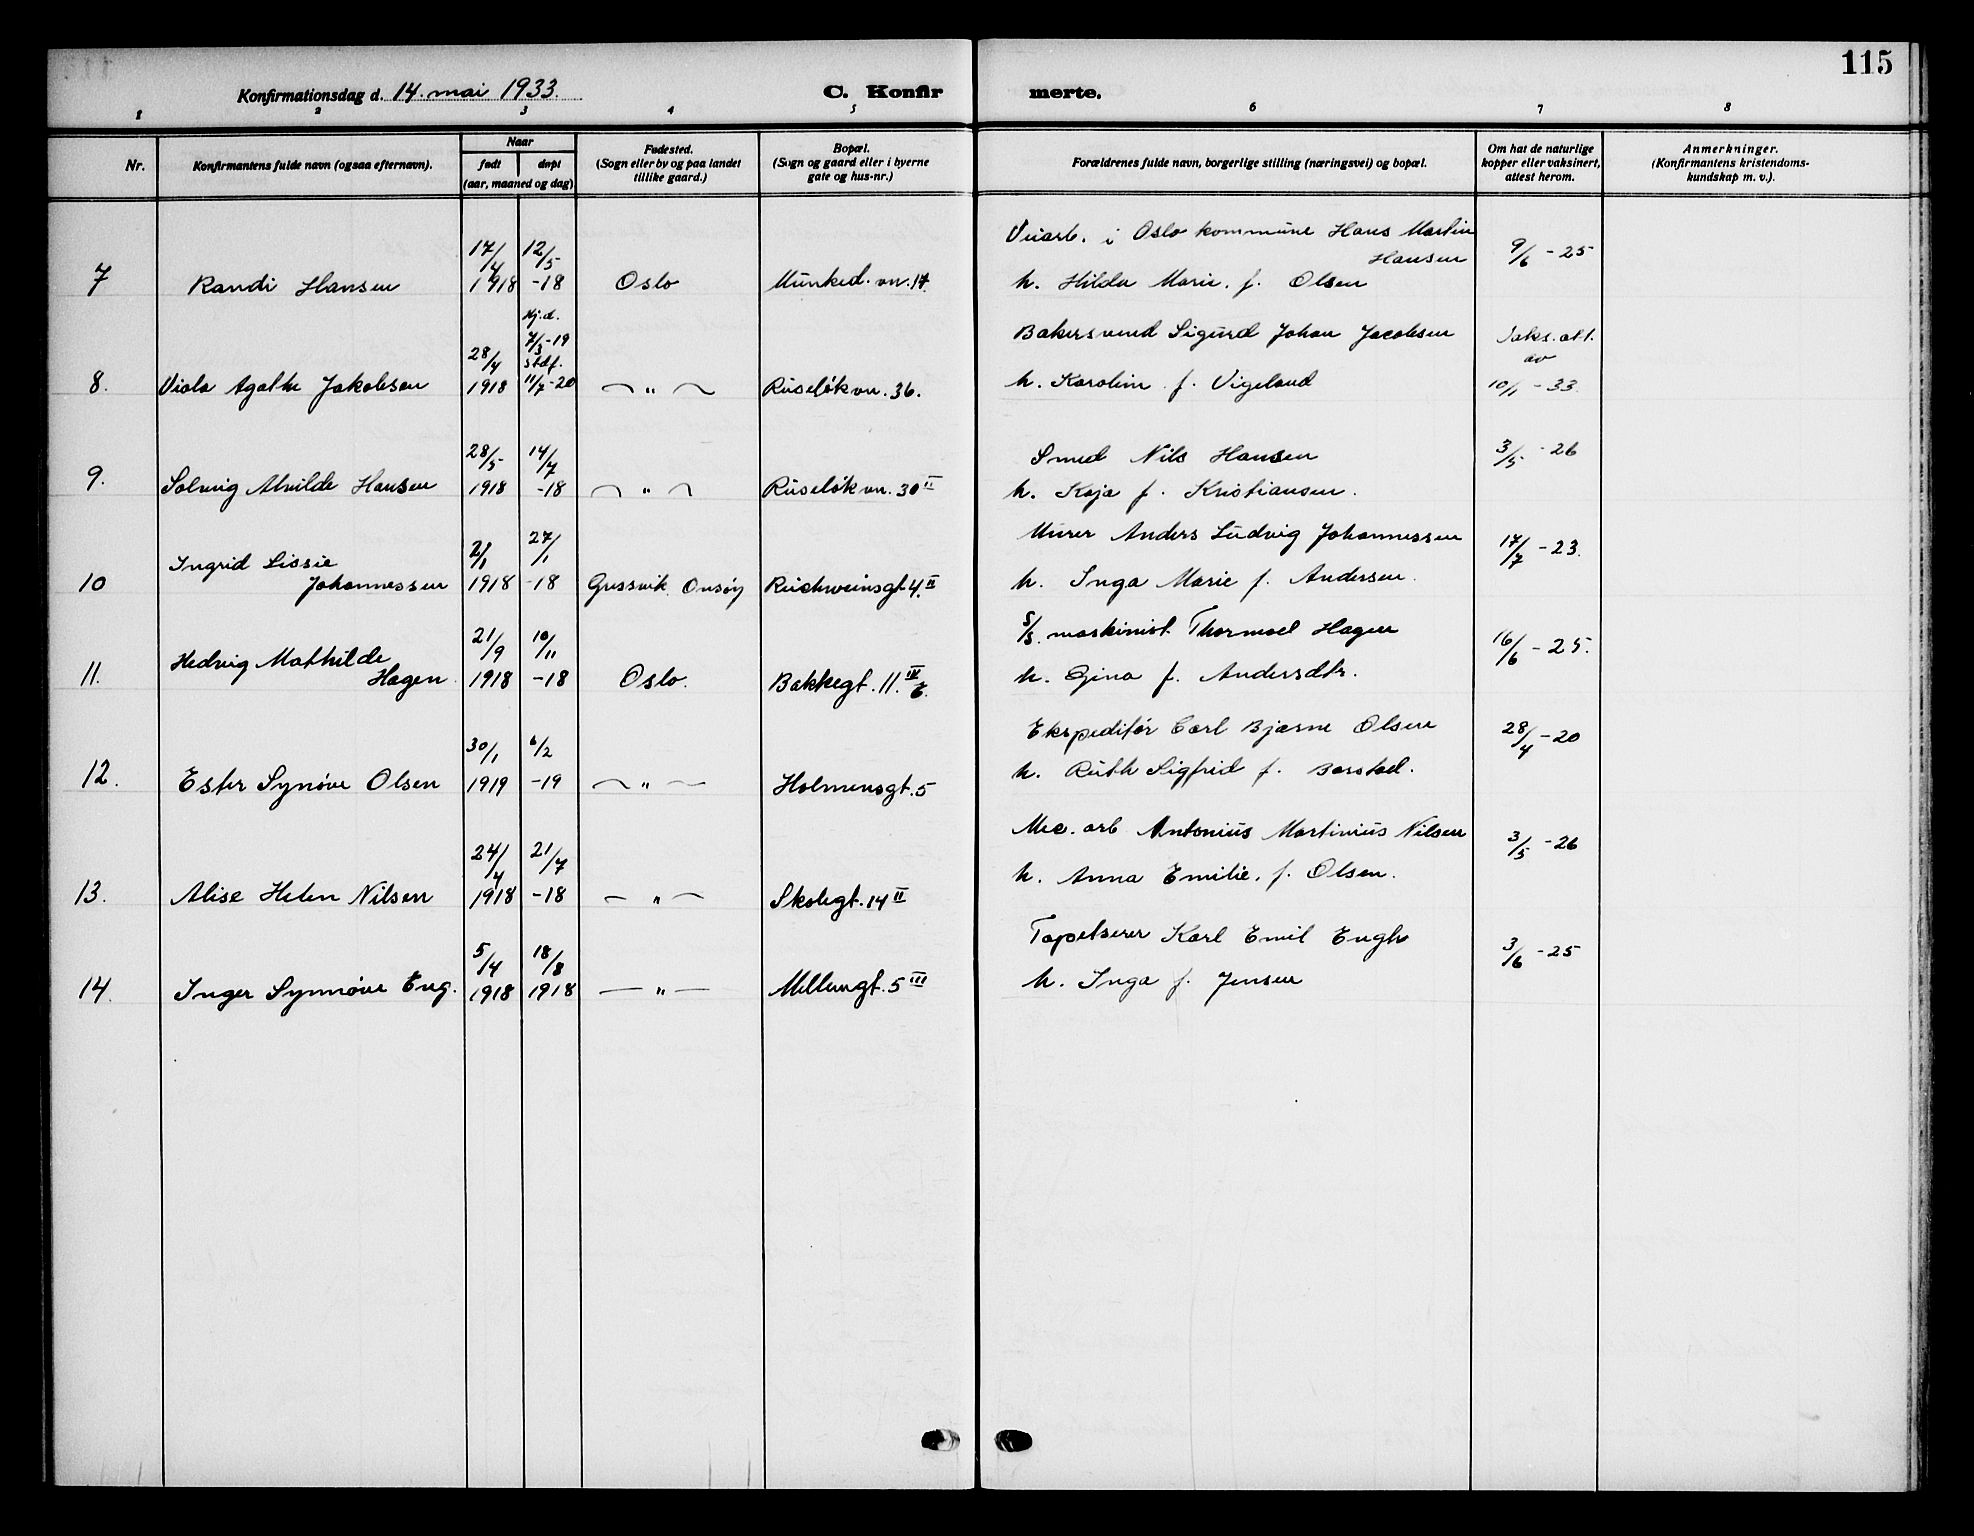 115
Konfirmationsdag d. 14. mai 1933.
C. Konfirmerte.
1 2 3 4 5 6 7 8
Nr.
Konfirmantens fulde navn (ogsaa efternavn).
Naar
født
døpt
(aar, maaned og dag)
Fødested.
(Sogn eller by og paa landet
tillike gaard.)
Bopæl.
(Sogn og gaard eller i byerne
gate og hus-nr.)
Forældrenes fulde navn, borgerlige stilling (næringsvei) og bopæl.
Om hat de naturlige
kopper eller vaksinert,
attest herom.
Anmerkninger.
(Konfirmantens kristendoms-
kundskap m. v.).
17/4 12/5 Veiarb. i Oslo kommune Hans Martin
Hansen 9/6 - 25
7 Randi Hansen 1918 -18 Oslo Munked. vn. 17. h. Hilda Marie. f. Olsen
Hj.d.
28/4 7/3-19 Bakersvend Sigurd Johan Jacobsen Vaks. att.
stdf. av
8. Viola Agathe Jakobsen 1918 11/7-20 — " — Ruseløkvn. 36. h. Karoline f. Vigeland 10/1 - 33.
28/5 14/7 Smed Nils Hansen 3/5 - 26
9. Solveig Alvilde Hansen 1918 -18 — " — Ruseløkvn. 30 II h. Kaja f. Kristiansen.
Ingrid Lissie 2/1 27/1 Murer Anders Ludvig Johannessen 17/7 - 23.
10 Johannessen 1918 -18 Gressvik Onsøy Reichweinsgt. 4. II h. Inga Marie f. Andersen.
Hedvig Mathilde 21/9 10/11 S/S. maskinist Thormod Hagen 16/6 - 25.
11. Hagen 1918 -18 Oslo. Bakkegt. 11. IV h. Gina f. Andersdtr.
30/1 6/2 Ekspeditør Carl Bjarne Olsen 28/4 - 20
12. Ester Synøve Olsen 1919 -19 — " — Holmensgt. 5 h. Ruth Sigfrid f. Borstad.
24/4 21/7 Mec. arb Antonius Martinius Nilsen 3/5 - 26
13. Alise Helen Nilsen 1918 -18 — " — Skolegt. 14 II h. Anna Emilie. f. Olsen.
5/4 18/8 Tapetserer Karl Emil Engh 3/6 - 25
14. Inger Synnøve Eng. 1918 1918 — " — Mellemgt. 5 III h. Inga f. Jensen